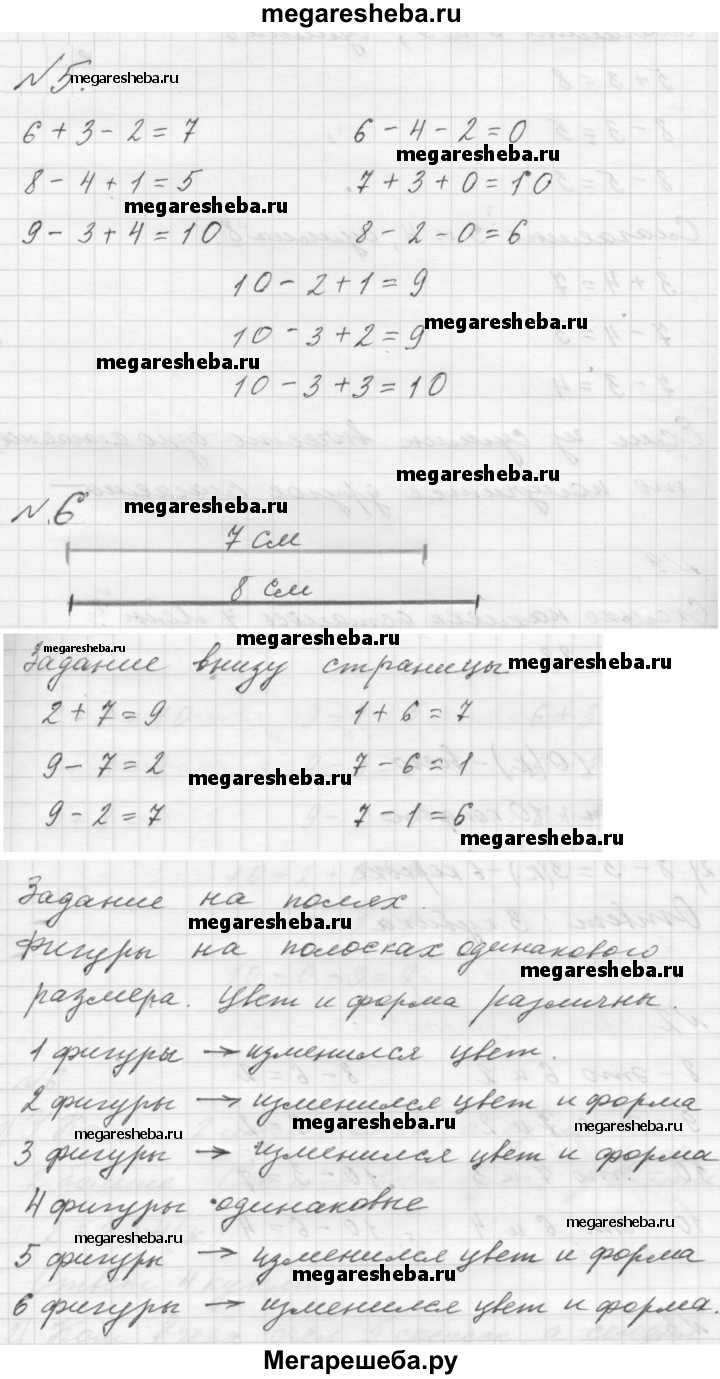 megaresheba.ru
№5. megaresheba.ru
6 + 3 - 2 = 7 6 - 4 - 2 = 0
megaresheba.ru
8 - 4 + 1 = 5 7 + 3 + 0 = 10
megaresheba.ru
9 - 3 + 4 = 10 8 - 2 - 0 = 6
10 - 2 + 1 = 9
megaresheba.ru
10 - 3 + 2 = 9
megaresheba.ru
10 - 3 + 3 = 10
megaresheba.ru
№.6 megaresheba.ru
7 см
8 см
megaresheba.ru
megaresheba.ru
Задание внизу страницы megaresheba.ru
2 + 7 = 9 1 + 6 = 7
9 - 7 = 2 7 - 6 = 1
megaresheba.ru
9 - 2 = 7 7 - 1 = 6
megaresheba.ru
Задание на полях.
megaresheba.ru
Фигуры на полосках одинакового
megaresheba.ru
размера. Цвет и форма различны.
1 фигуры → изменился цвет.
2 фигуры → изменился цвет и форма
megaresheba.ru megaresheba.ru megaresheba.ru
3 фигуры → изменился цвет и форма
4 фигуры одинаковые
megaresheba.ru megaresheba.ru
5 фигуры → изменился цвет и форма
megaresheba.ru
6 фигуры → изменился цвет и форма.
Мегарешеба.ру